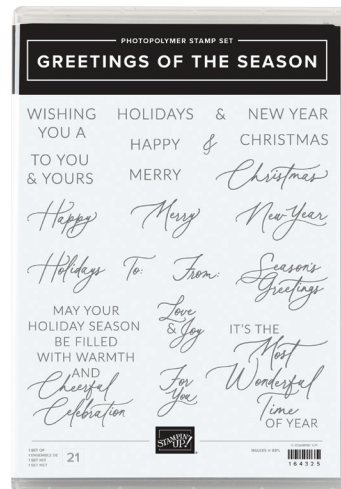 PHOTOPOLYMER STAMP SET
GREETINGS OF THE SEASON
WISHING
YOU A
HOLIDAYS & NEW YEAR
HAPPY & CHRISTMAS
TO YOU
& YOURS
MERRY
Christmas
Happy
Merry
New Year
Holidays
To:
From:
Season's
Greetings
MAY YOUR
HOLIDAY SEASON
BE FILLED
WITH WARMTH
AND
Cheerful
Celebration
Love
& Joy
For
You
IT'S THE
Most
Wonderful
Time
OF YEAR
STAMPIN' UP!
1 SET OF
21
164325